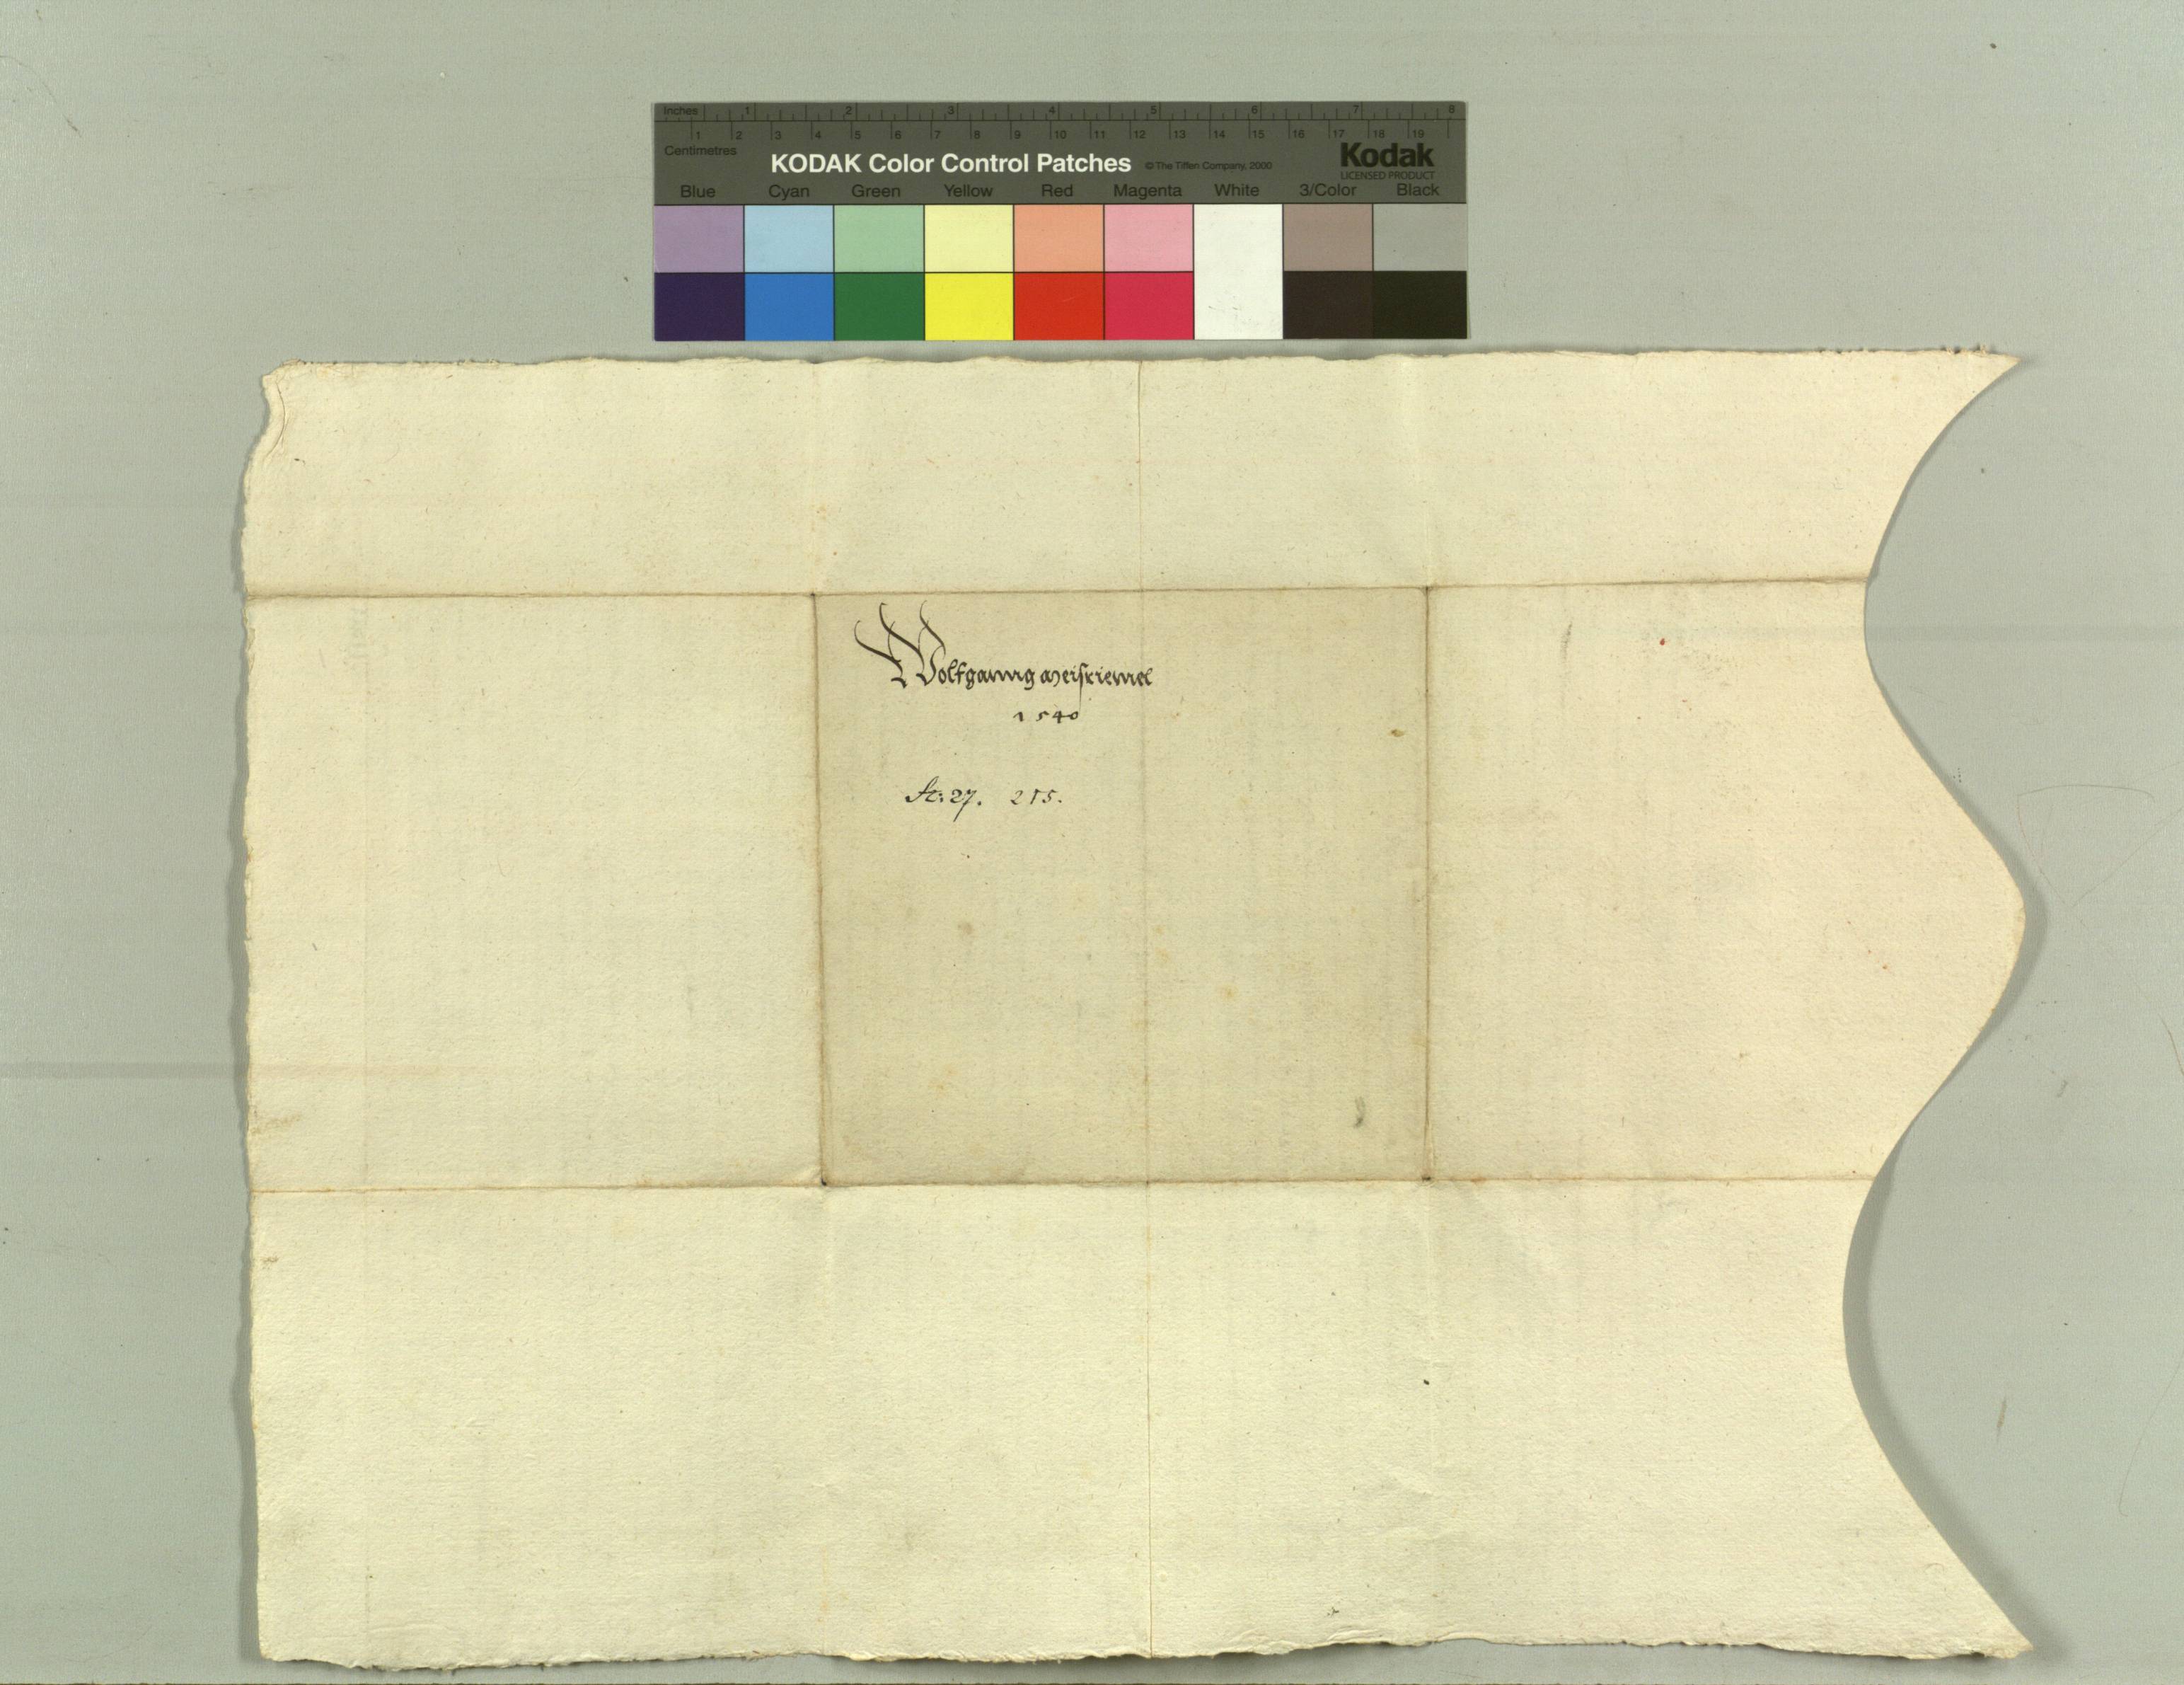 Inches 1 2 3 4 5 6 7 8
1 2 3 4 5 6 7 8 9 10 11 12 13 14 15 16 17 18 19
Centimetres
KODAK Color Control Patches © The Tiffen Company, 2000 Kodak
LICENSED PRODUCT
Blue Cyan Green Yellow Red Magenta White 3/Color Black
Wolfganng
1540
St: 27. 215.